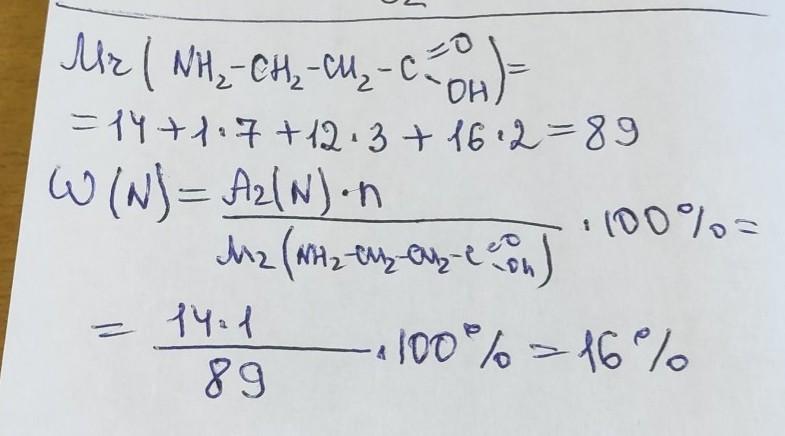 Mr(NH₂-CH₂-CH₂-C=O-OH)=
=14+1·7+12·3+16·2=89
ω(N)=Ar(N)·n/Mr(NH₂-CH₂-CH₂-C=O-OH)·100%=
=14·1/89·100%=16%